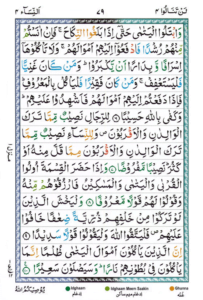 لن تنالوا ٤ ٧٩ النسآء ٤
وَابْتَلُوا الْيَتٰمٰى حَتّٰۤى اِذَا بَلَغُوا النِّكَاحَ ۚ فَاِنْ اٰنَسْتُمْ
مِّنْهُمْ رُشْدًا فَادْفَعُوْۤا اِلَيْهِمْ اَمْوَالَهُمْ ۚ وَلَا تَاْكُلُوْهَاۤ
اِسْرَافًا وَّبِدَارًا اَنْ يَّكْبَرُوْا ؕ وَمَنْ كَانَ غَنِيًّا
فَلْيَسْتَعْفِفْ ۚ وَمَنْ كَانَ فَقِيْرًا فَلْيَاْكُلْ بِالْمَعْرُوْفِ ؕ
فَاِذَا دَفَعْتُمْ اِلَيْهِمْ اَمْوَالَهُمْ فَاَشْهِدُوْا عَلَيْهِمْ ؕ
وَكَفٰى بِاللّٰهِ حَسِيْبًا ۞ لِلرِّجَالِ نَصِيْبٌ مِّمَّا تَرَكَ
الْوَالِدٰنِ وَالْاَقْرَبُوْنَ وَلِلنِّسَآءِ نَصِيْبٌ مِّمَّا تَرَكَ
الْوَالِدٰنِ وَالْاَقْرَبُوْنَ مِمَّا قَلَّ مِنْهُ اَوْ كَثُرَ ؕ
نَصِيْبًا مَّفْرُوْضًا ۞ وَاِذَا حَضَرَ الْقِسْمَةَ اُولُوا
الْقُرْبٰى وَالْيَتٰمٰى وَالْمَسٰكِيْنُ فَارْزُقُوْهُمْ مِّنْهُ
وَقُوْلُوْا لَهُمْ قَوْلًا مَّعْرُوْفًا ۞ وَلْيَخْشَ الَّذِيْنَ لَوْ
تَرَكُوْا مِنْ خَلْفِهِمْ ذُرِّيَّةً ضِعٰفًا خَافُوْا
عَلَيْهِمْ ۪ فَلْيَتَّقُوا اللّٰهَ وَلْيَقُوْلُوْا قَوْلًا سَدِيْدًا ۞ اِنَّ
الَّذِيْنَ يَاْكُلُوْنَ اَمْوَالَ الْيَتٰمٰى ظُلْمًا اِنَّمَا
يَاْكُلُوْنَ فِيْ بُطُوْنِهِمْ نَارًا ؕ وَسَيَصْلَوْنَ سَعِيْرًا ۞
يُوْصِيْكُمُ اللّٰهُ
Idghaam
Idghaam Meem Saakin
Ghunna